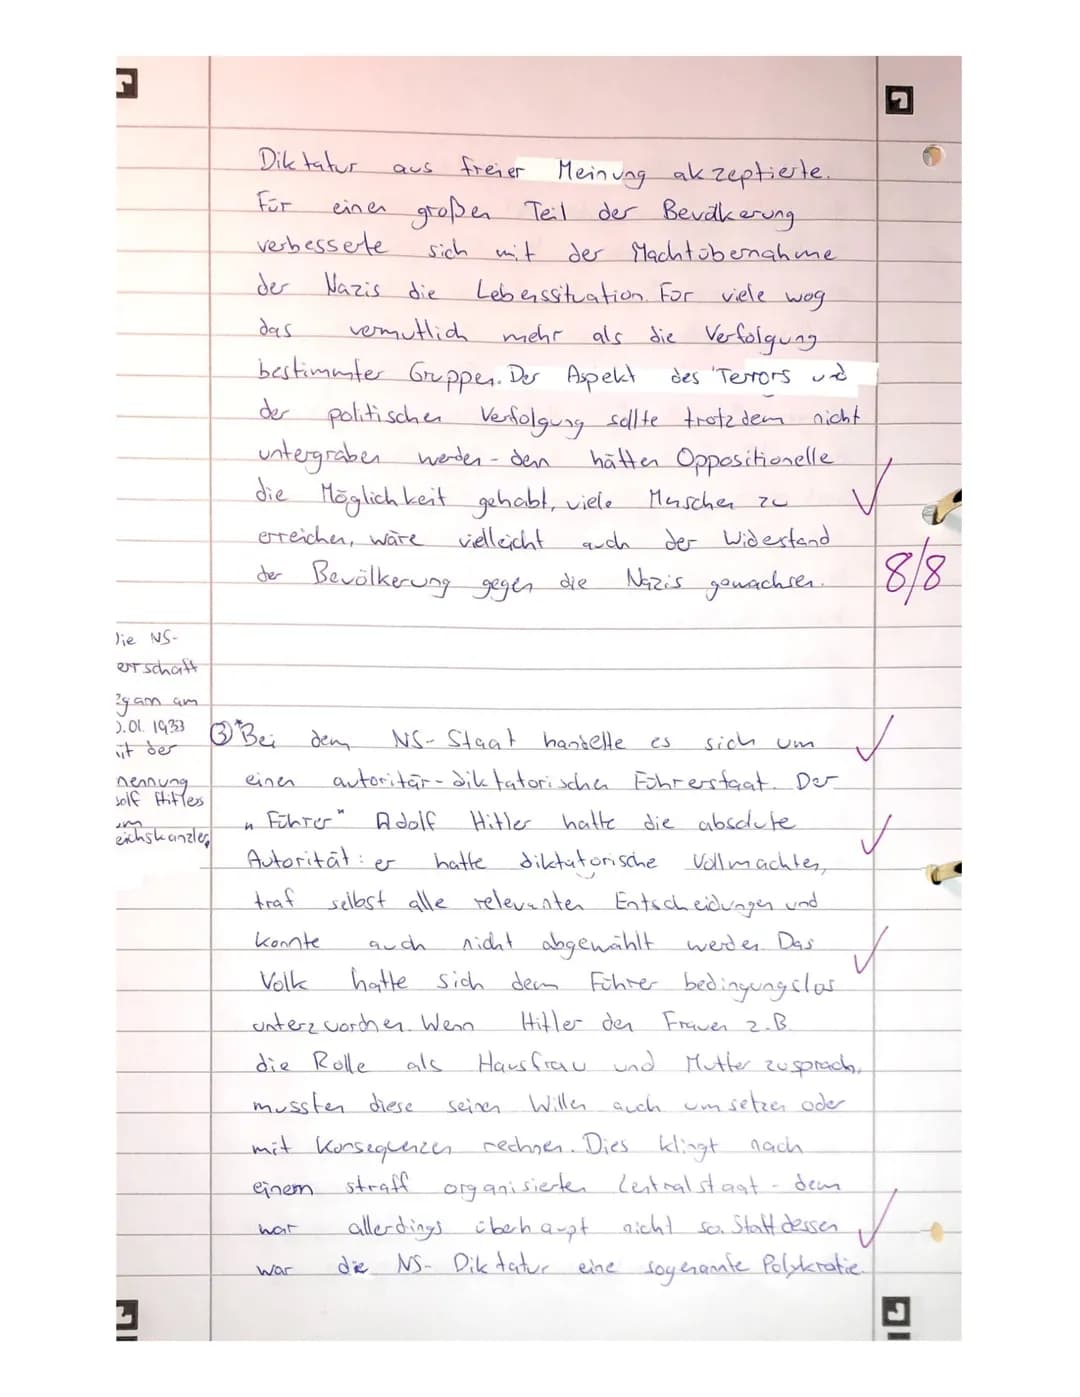 Diktatur aus freier Meinung akzeptierte.
Für einen großen Teil der Bevölkerung
verbesserte sich mit der Machtübernahme
der Nazis die Lebenssituation. Für viele wog
das vermutlich mehr als die Verfolgung
bestimmter Gruppen. Der Aspekt des Terrors und
der politischen Verfolgung sollte trotzdem nicht
untergraben werden - denn hätten Oppositionelle
die Möglichkeit gehabt, viele Menschen zu
erreichen, wäre vielleicht auch der Widerstand
der Bevölkerung gegen die Nazis gewachsen.
8/8
Die NS-
errschaft
egann am
0.01.1933
it der
nennung
dolf Hitlers
um
eichskanzler
③ *Bei dem NS-Staat handelte es sich um
einen autoritär-diktatorischen Führerstaat. Der
„Führer" Adolf Hitler hatte die absolute
Autorität: er hatte diktatorische Vollmachten,
traf selbst alle relevanten Entscheidungen und
konnte auch nicht abgewählt werden. Das
Volk hatte sich dem Führer bedingungslos
unterzuordnen. Wenn Hitler den Frauen z.B.
die Rolle als Hausfrau und Mutter zusprach,
mussten diese seinen Willen auch umsetzen oder
mit Konsequenzen rechnen. Dies klingt nach
einem straff organisierten Zentralstaat - dem
war allerdings überhaupt nicht so. Stattdessen
war die NS-Diktatur eine sogenannte Polykratie.